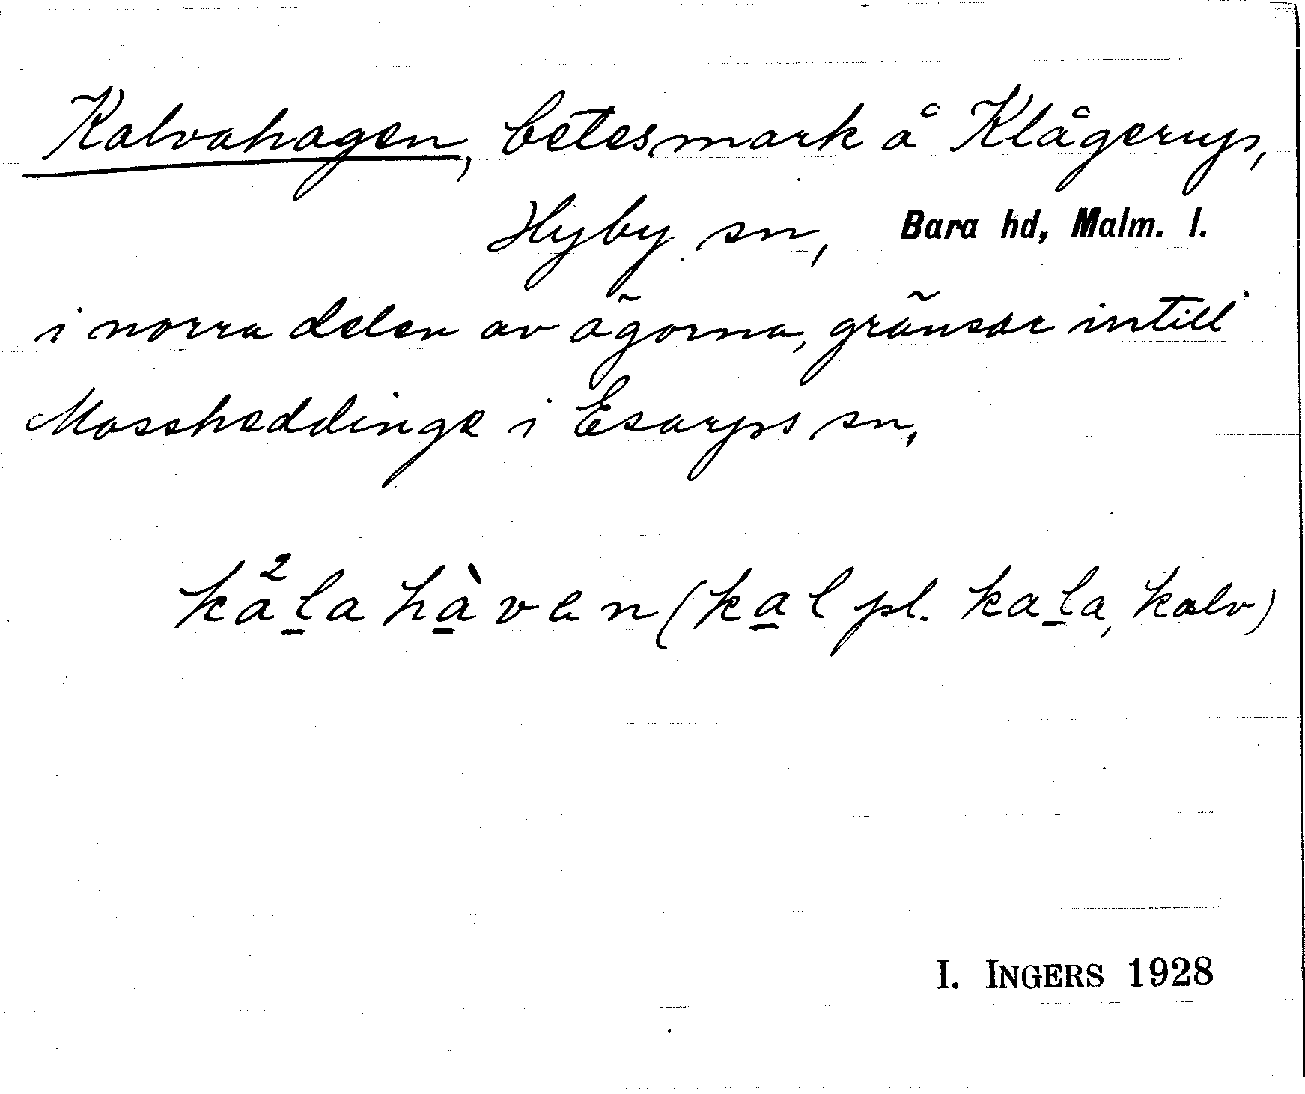 Kalvahagen, betesmark å Klågerup,
Hyby sn, Bara hd, Malm. l.
i norra delen av ägorna, gränsar intill
Mossheddinge i Esarps sn.
ka²l̲a hà̲ven (ka̲l pl. kal̲a, kalv)
I. INGERS 1928